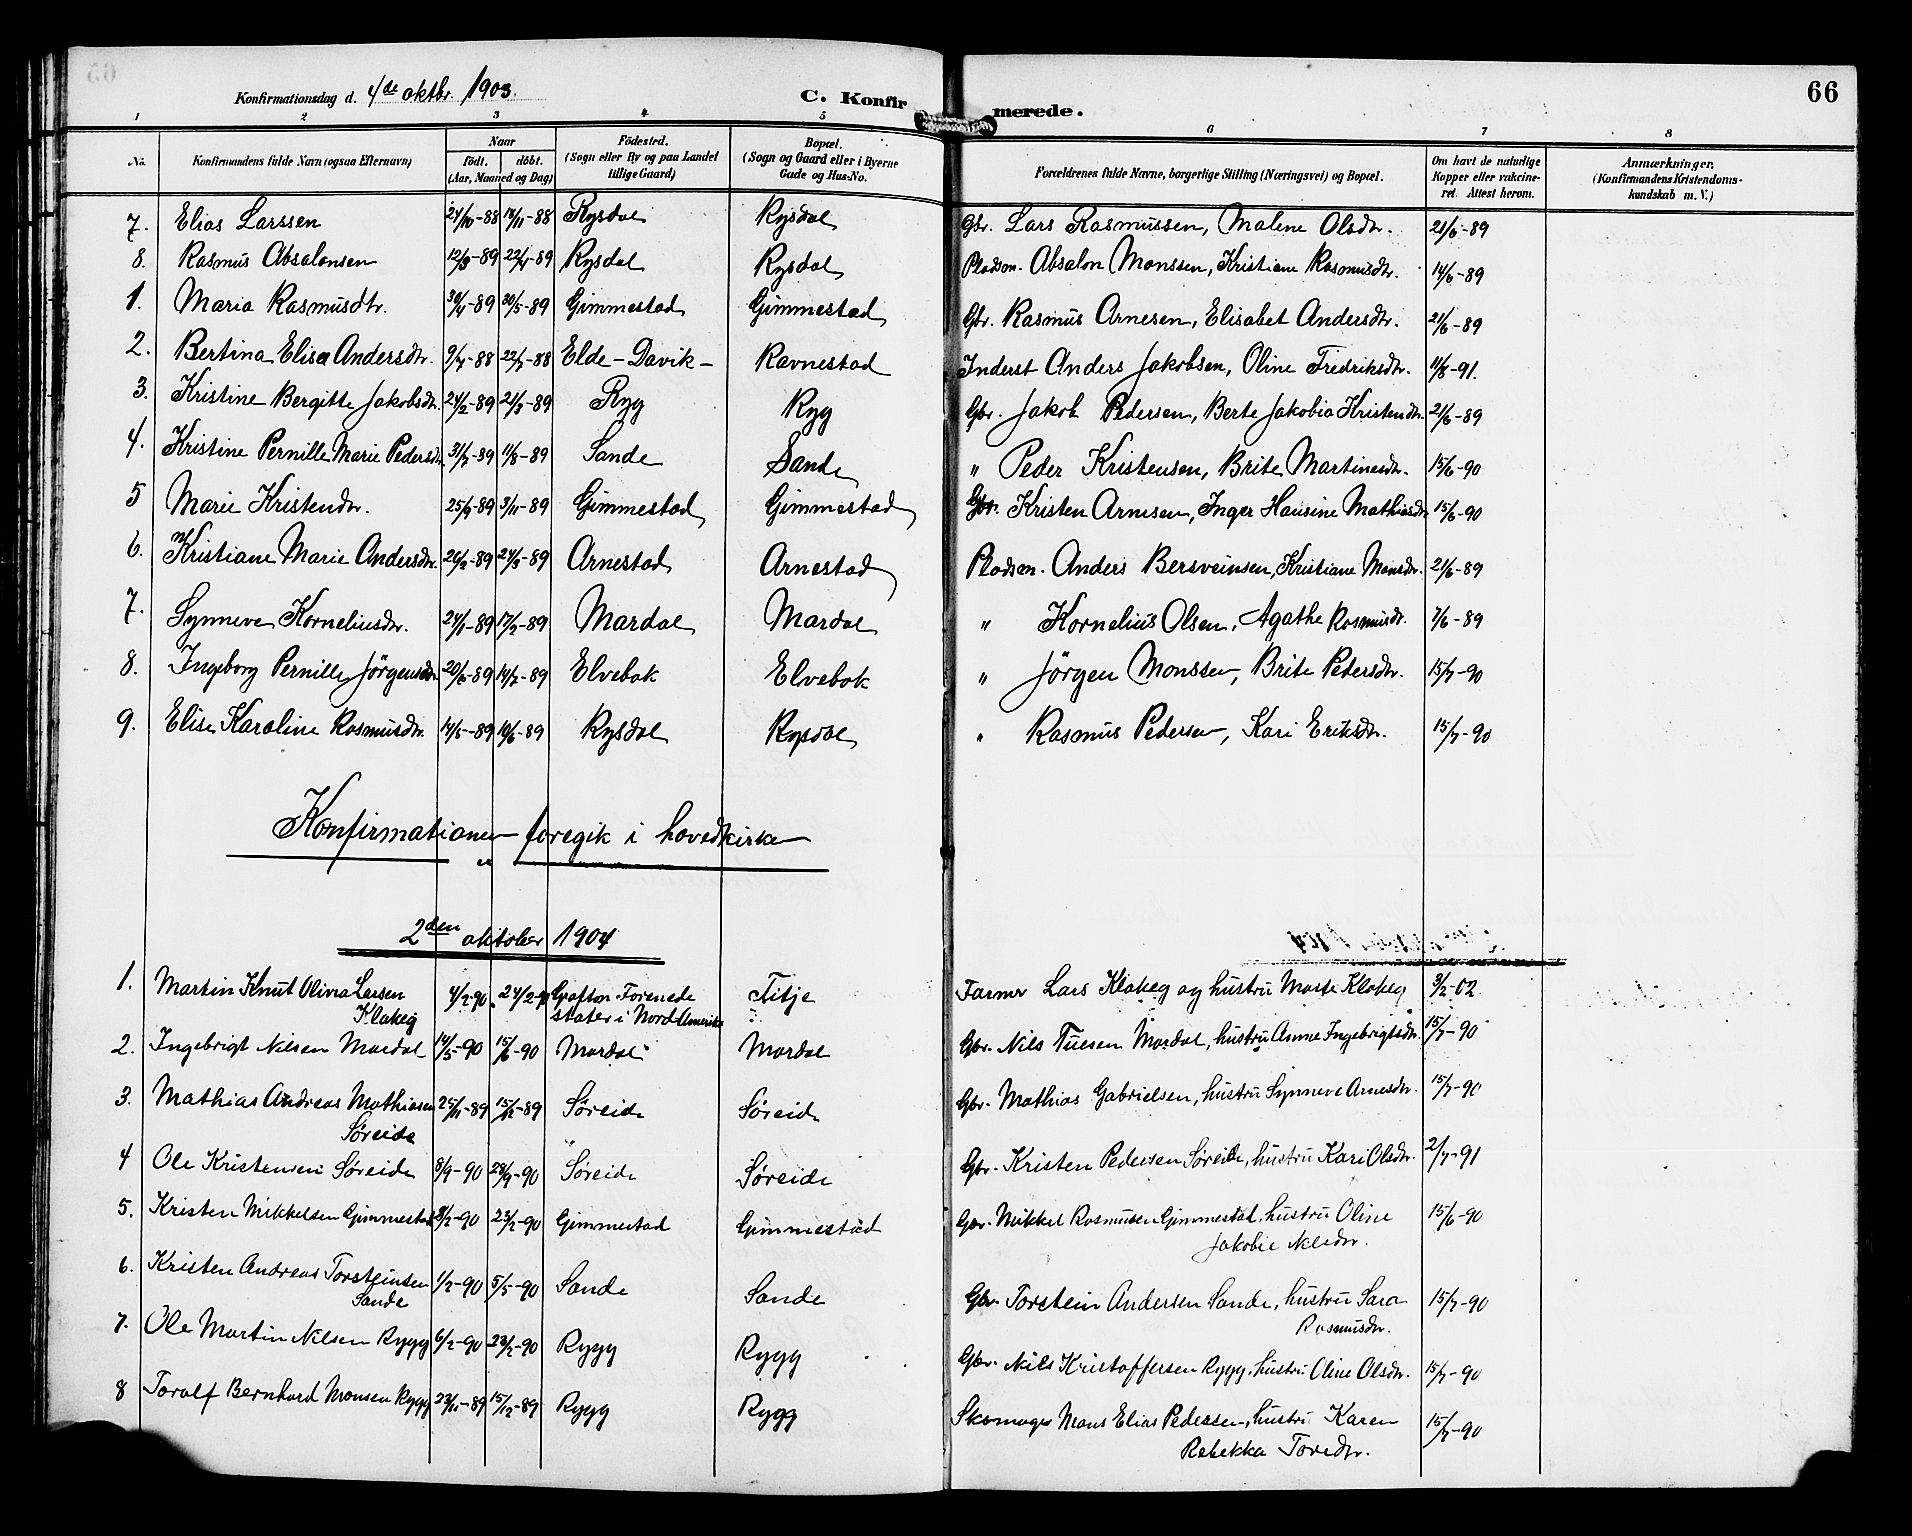 66
Konfirmationsdag d. 4de oktbr. 1903.
C. Konfirmerede.
1 2 3 4 5 6 7 8
No. Konfirmandens fulde Navn (ogsaa Efternavn) Naar födt. döbt. (Aar, Maaned og Dag) Födested. (Sogn eller By og paa Landet tillige Gaard) Bopæl. (Sogn og Gaard eller i Byerne Gade og Hus-No. Forældrenes fulde Navne, borgerlige Stilling (Næringsvei) og Bopæl. Om havt de naturlige Kopper eller vakcineret. Attest herom. Anmærkninger. (Konfirmandens Kristendomskundskab m. V.)
7. Elias Larssen 24/10-88 18/11-88 Rysdal Rysdal Gbr. Lars Rasmussen, Malene Olsdtr. 21/6-89
8. Rasmus Absalonsen 12/3-89 22/4-89 Rysdal Rysdal Pladsm. Absalon Monssen, Kristiane Rasmusdtr. 14/6-89
1. Maria Rasmusdtr. 30/4-89 30/5-89 Gimmestad Gimmestad Gbr. Rasmus Arnesen, Elisabet Andersdtr. 21/6-89
2. Bertina Elisa Andersdtr. 9/7-88 22/7-88 Elde - Davik - Ravnestad Inderst Anders Jakobsen, Oline Fredriksdtr. 11/8-91.
3. Kristine Bergitte Jakobsdtr. 24/2-89 21/3-89 Ryg Ryg Gbr. Jakob Pedersen, Berte Jakobia Kristendtr. 21/6-89
4. Kristine Pernille Marie Pedersdtr. 31/7-89 11/8-89 Sande Sande " Peder Kristensen, Brite Martinesdtr. 15/6-90
5 Marie Kristendtr. 25/9-89 3/11-89 Gimmestad Gimmestad Gbr. Kristen Arnesen, Inger Hansine Mathiasdtr. 15/6-90
6. Kristiane Marie Andersdtr. 26/2-89 24/3-89 Arnestad Arnestad Pladsm. Anders Bersveinsen, Kristiane Monsdtr. 21/6-89
7. Synneve Korneliusdtr. 24/1-89 17/2-89 Mardal Mardal " Kornelius Olsen, Agathe Rasmusdtr. 7/6-89
8. Ingeborg Pernille Jörgensdtr. 20/6-89 14/7-89 Elvebak Elvebak " Jörgen Monssen, Brite Pedersdtr. 15/7-90
9. Elise Karoline Rasmusdtr. 14/5-89 10/6-89 Rysdal Rysdal " Rasmus Pedersen, Kari Eriksdtr. 15/7-90
Konfirmationen foregik i hovedkirken
2den oktober 1904
1. Martin Knut Olivia Larsen 4/2-90 24/2-90 Grafton Forenede Titje Farmer Lars Klakeg og hustru Marte Klakeg 3/2-02
Klakeg stater i Nord-Amerika
2. Ingebrigt Nilsen Mardal 14/5-90 15/6-90 Mardal Mardal Gbr. Nils Tuesen Mardal, hustru Anne Ingebrigtsdtr. 15/7-90
3. Mathias Andreas Mathiasen 25/11-89 15/12-89 Søreide Søreide Gbr. Mathias Gabrielsen, hustru Synneve Arnesdtr. 15/7-90
Søreide
4 Ole Kristensen Søreide 8/9-90 28/9-90 Søreide Søreide Gbr. Kristen Pedersen Søreide, hustru Kari Olsdtr. 2/7-91
5. Kristen Mikkelsen Gimmestad 8/2-90 23/2-90 Gimmestad Gimmestad Gbr. Mikkel Rasmussen Gimmestad, hustru Oline 15/6-90
Jakobie Nilsdtr.
6. Kristen Andreas Torsteinsen 1/2-90 5/5-90 Sande Sande Gbr. Torstein Andersen Sande, hustru Sara 15/7-90
Sande Rasmusdtr.
7. Ole Martin Nilsen Rygg 6/2-90 23/2-90 Rygg Rygg Gbr. Nils Kristoffersen Rygg, hustru Oline Olsdtr. 15/7-90
8 Toralf Bernhard Monsen Rygg 23/11-89 15/12-89 Rygg Rygg Skomager Mons Elias Pedersen, hustru Karen 15/7-90
Rebekka Toredtr.